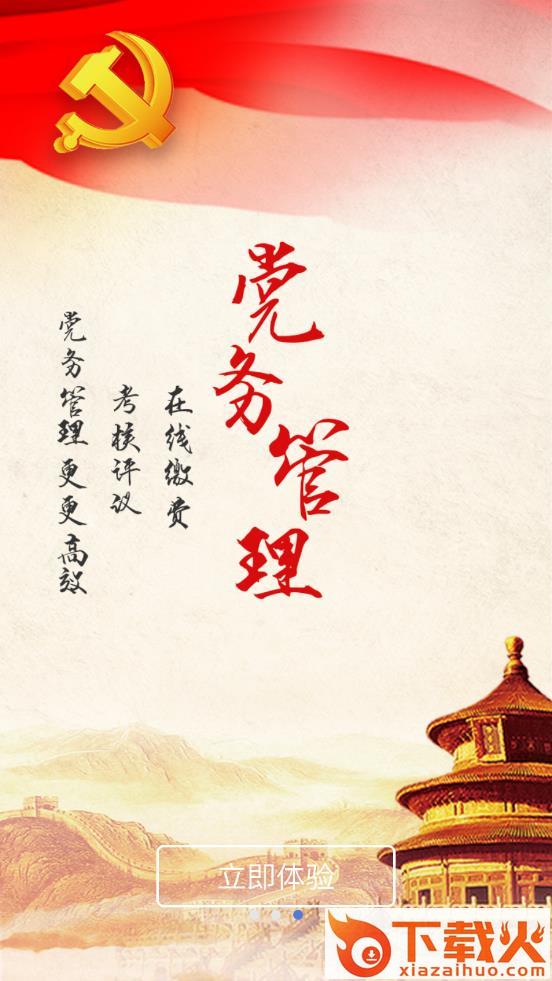 党务管理
在线缴费
考核评议
党务管理更更高效
立即体验
下载火
xiazaihuo.com